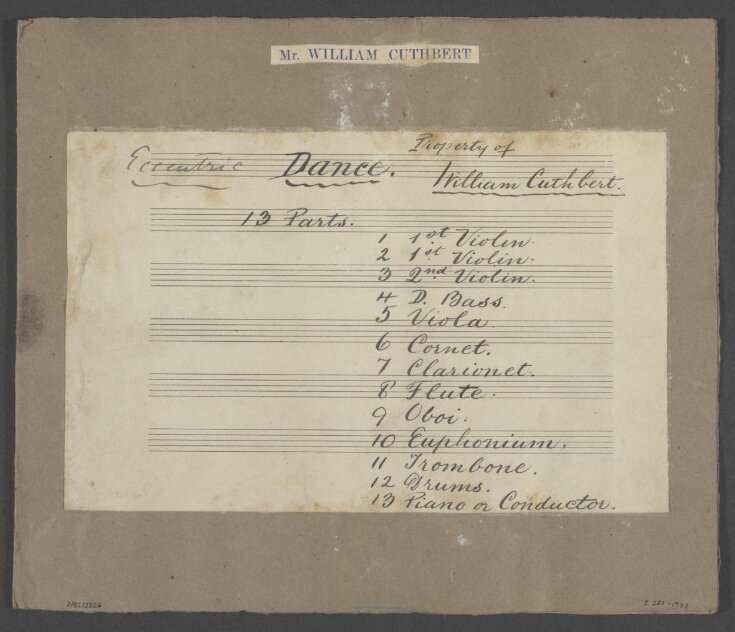 Mr. WILLIAM CUTHBERT
Eccentric Dance.
Property of
William Cuthbert.
13 Parts.
1 1st Violin.
2 1st Violin.
3 2nd Violin.
4 D. Bass.
5 Viola.
6 Cornet.
7 Clarionet.
8 Flute.
9 Oboi.
10 Euphonium.
11 Trombone.
12 Drums.
13 Piano or Conductor.
S. 281-1983